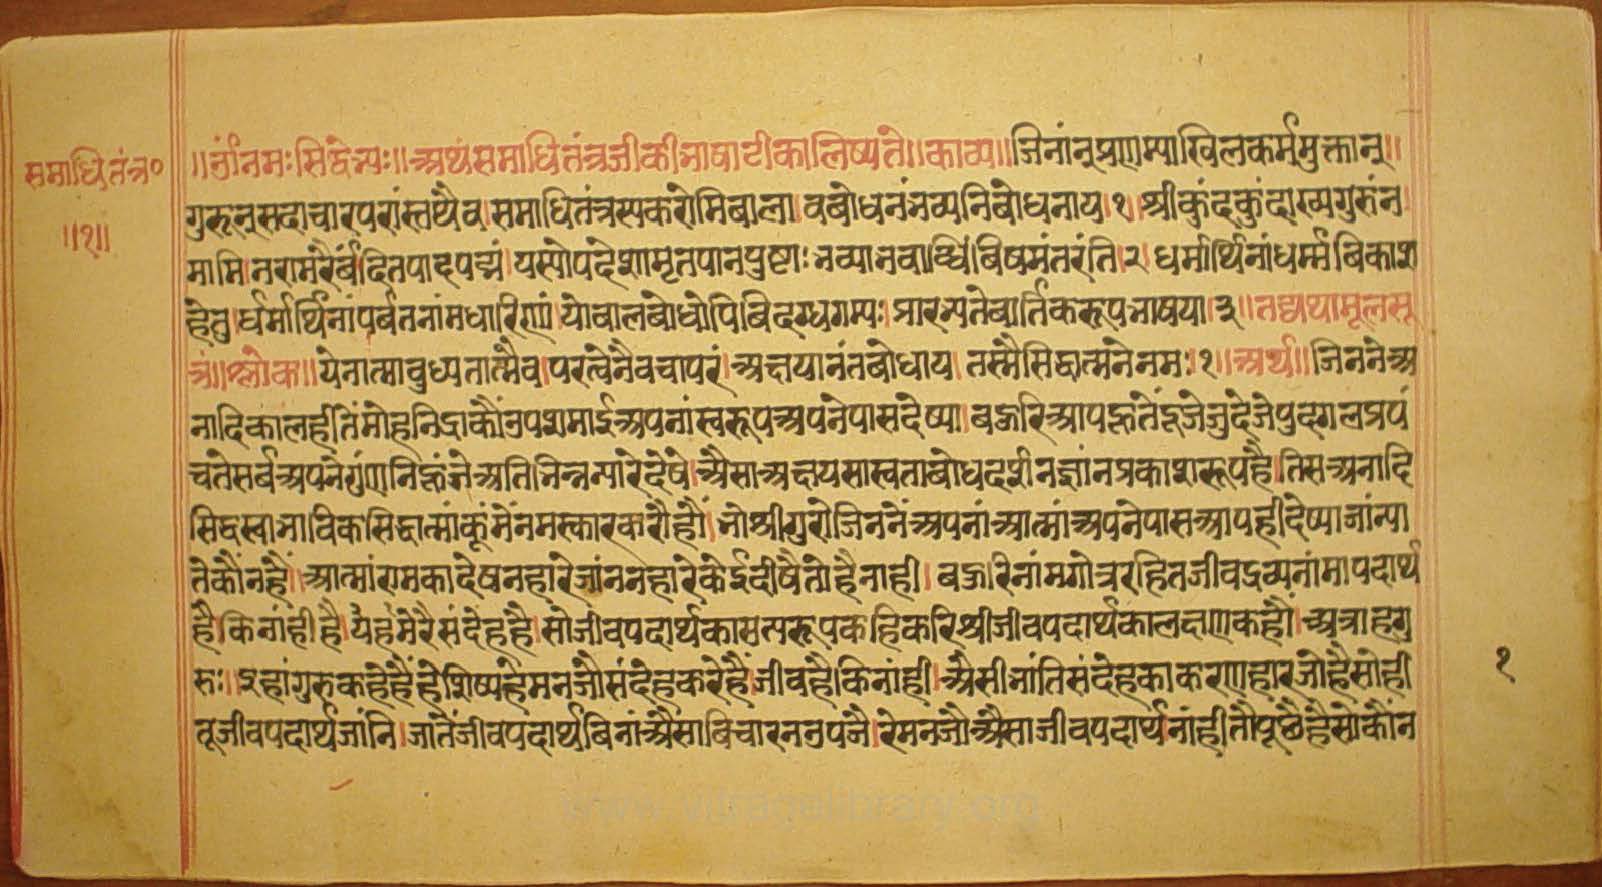 समाधितंत्र०
॥१॥
॥ॐनमःसिद्धेभ्यः॥अथसमाधितंत्रजीकीभाषाटीकालिष्यते॥काव्य॥जिनांन्प्रणम्याखिलकर्ममुक्तान्॥
गुरून्सदाचारपरांस्तथैव।समाधितंत्रस्यकरोमिबाला।वबोधनंभव्यनिबोधनाय।१।श्रीकुंदकुंदाख्यगुरुंन
मामि।नरामरैर्बंदितपादपद्मं।यस्योपदेशामृतपानपुष्टाःभव्याभवाब्धिंबिषमंतरंति।२।धर्मार्थिनांधर्म्मबिकाश
हेतु।र्धर्मार्थिनांपर्बतनांमधारिणां।योबालबोधोपिबिदग्धगम्यः।प्रारभ्यतेबार्तिकरूपभाषया।३॥तद्यथामूलसू
त्रं॥श्लोक॥येनात्माबुध्यतात्मैव।परत्वेनैवचापरं।अक्षयानंतबोधाय।तस्मैसिद्धात्मनेनमः।१॥अर्थ॥जिननेअ
नादिकालहीतैंमोहनिद्राकौंउपशमाईअपनांस्वरूपअपनेपासदेष्या।बहुरिआपहूतेंदूजेजुदेजेपुदगलप्रपं
चतेसर्बअपनेंगुणनिहूंतेअतिभिन्नन्यारेदेषे।अैसाअक्षयसास्वताबोधदर्शनज्ञांनप्रकाशरूपहै।तिसअनादि
सिद्धस्वाभाविकसिद्धात्मांकूंमेंनमस्कारकरौंहौं।भोश्रीगुरोजिननेंअपनांआत्मांअपनेपासआपहीदेष्याजांन्या
तेकौंनहैं।आत्मांरामकादेषनहारेजांननहारेकेईदीषैतोहैनाही।बहुरिनांमगोत्ररहितजीवद्रव्यनांमापदार्थ
हैकिनांहीहै।यहमेरैसंदेहहै।सोजीवपदार्थकासत्यरूपकहिकरिश्रीजीवपदार्थकालक्षणकहौं।अत्राहगु
रुः॥इहांगुरुकहेहैंहेशिष्यहैमनजौसंदेहकरेहैं।जीवहैकिनांही।अैसीभांतिसंदेहकाकरणहारजोहैसोही
तूजीवपदार्थजांनि।जांतैंजीवपदार्थबिनांअैसाविचारनउपजै।रेमनजौअैसाजीवपदार्थनांहीतौपूछैहैसोकौंन
१